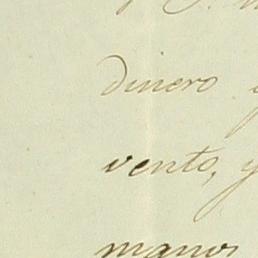 dinero
vento, y
manos